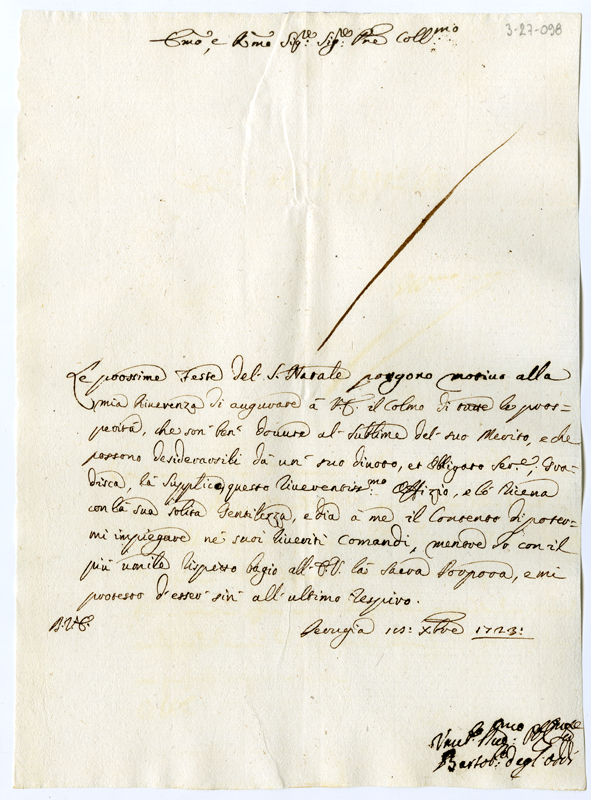 3-27-098
Emo, e Rmo Sig.re Sig.re Pne Coll.mo
Le prossime Feste del S. Natale porgono motivo alla
mia Riverenza di augurare à V.E. il Colmo di tutte le pros=
perità, che son' ben' dovute al Sublime del suo Merito, e che
possono desiderarsili dà un' suo divoto, et obligato Ser.e, Gra=
disca, la supplico, questo riverentiss.mo Offizio, e lo riceva
con la sua solita Gentilezza, e dia à me il Contento di poter=
mi impiegare ne' suoi Riveriti Comandi, mentre Io con il
più umile rispetto bagio all' E.V. la Sacra Porpora, e mi
protesto d'esser' sin' all' ultimo respiro.
D.V.E.
Perugia Xbre 1723:
Bartol.o degl'Oddi